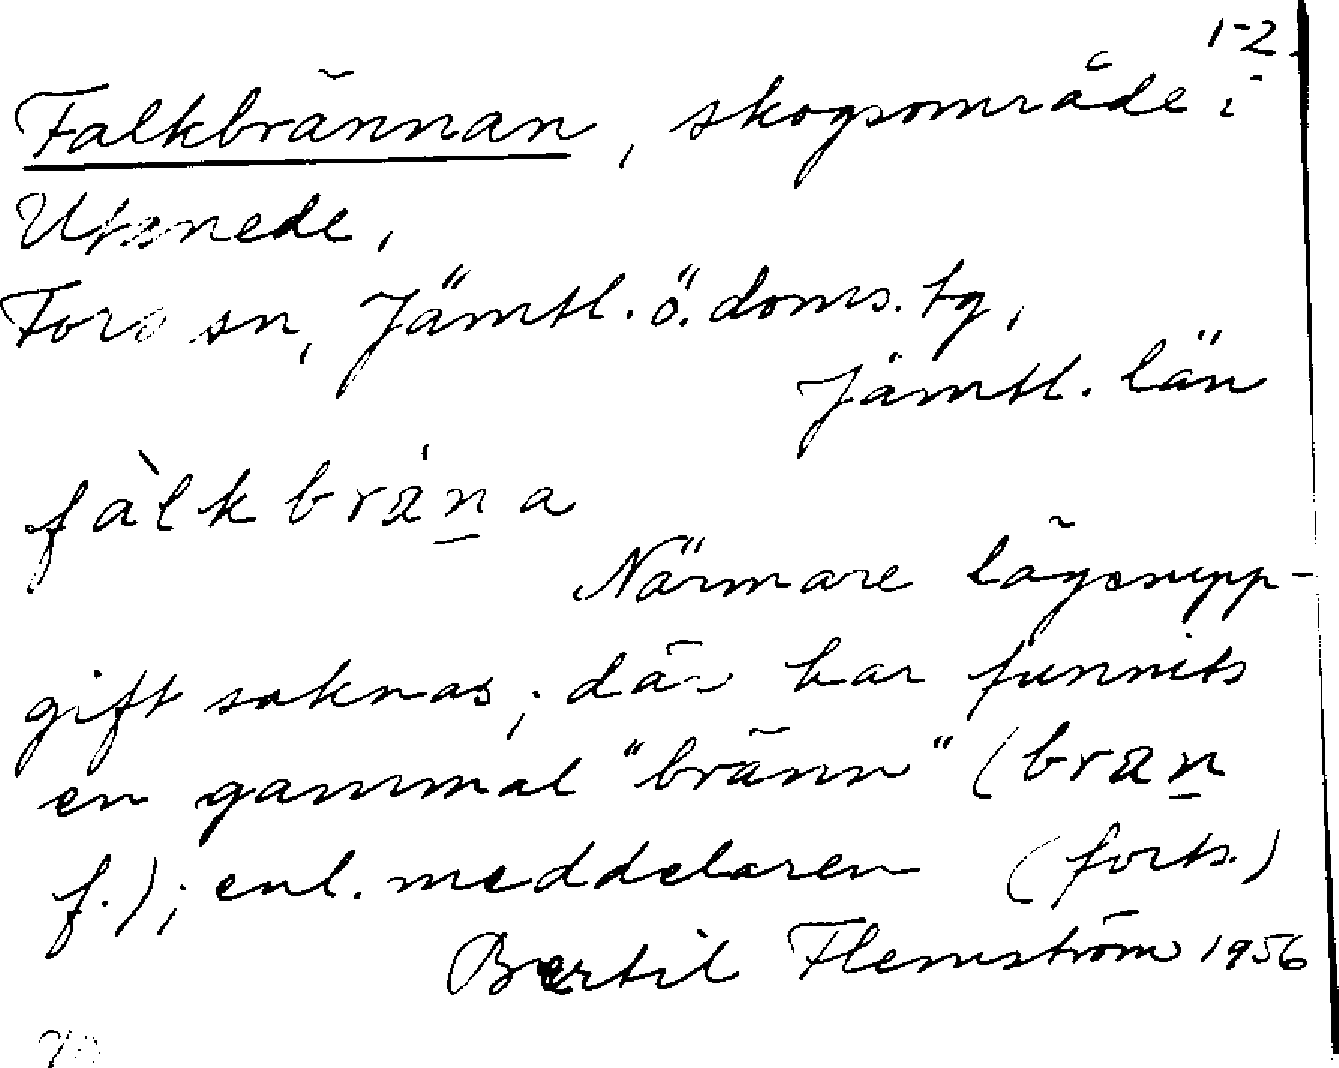 1-2.
Falkbrännan, skogsområde i
Utanede,
Fors sn, Jämtl. ö. doms. tg,
Jämtl. län
fàlkbrána
Närmare lägesupp-
gift saknas; där har funnits
en gammal "bränn" (bran
f.); enl. meddelaren (forts.)
Bertil Flemström 1956